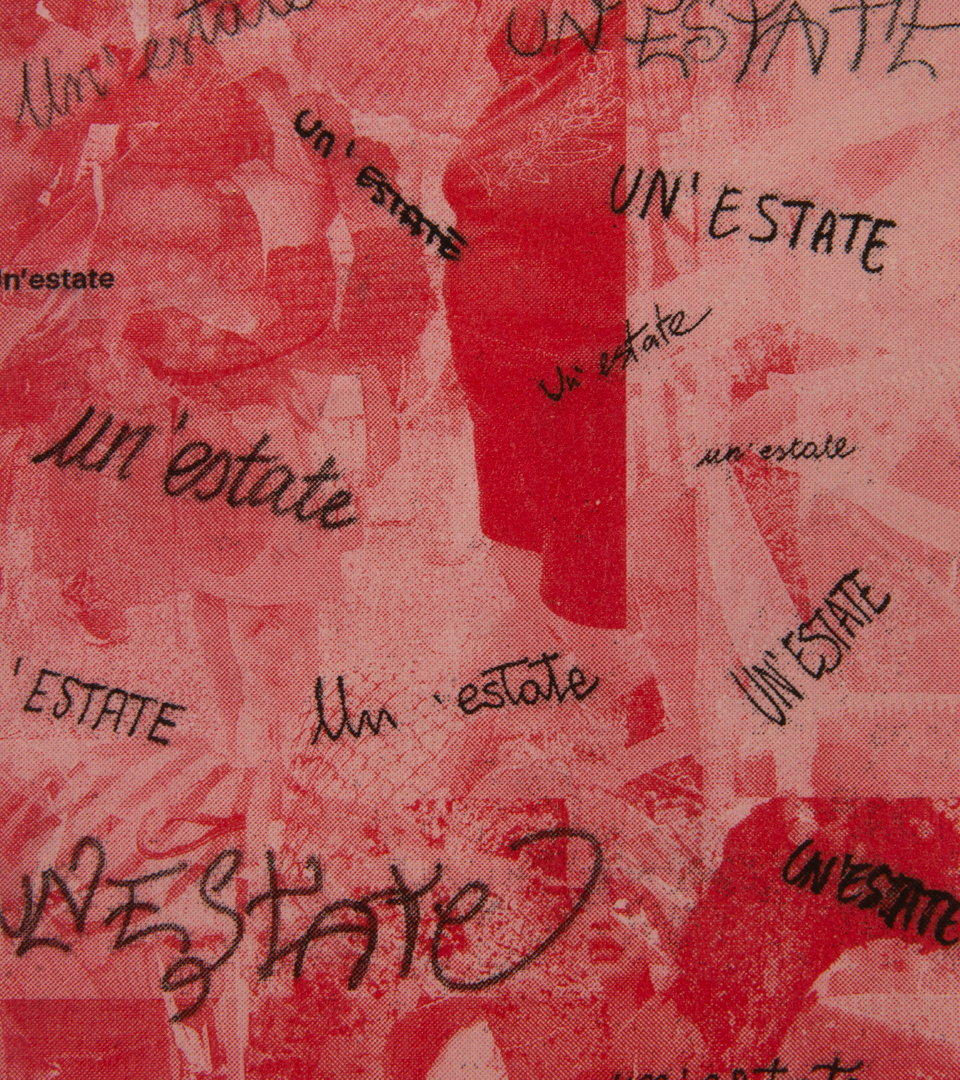 Un'estate
UN'ESTATE
un'ESTATE
UN'ESTATE
n'estate
un'estate
un'estate
un'estate
UN'ESTATE
'ESTATE
Un'estate
UN'ESTATE
UN'ESTATE
un'estate